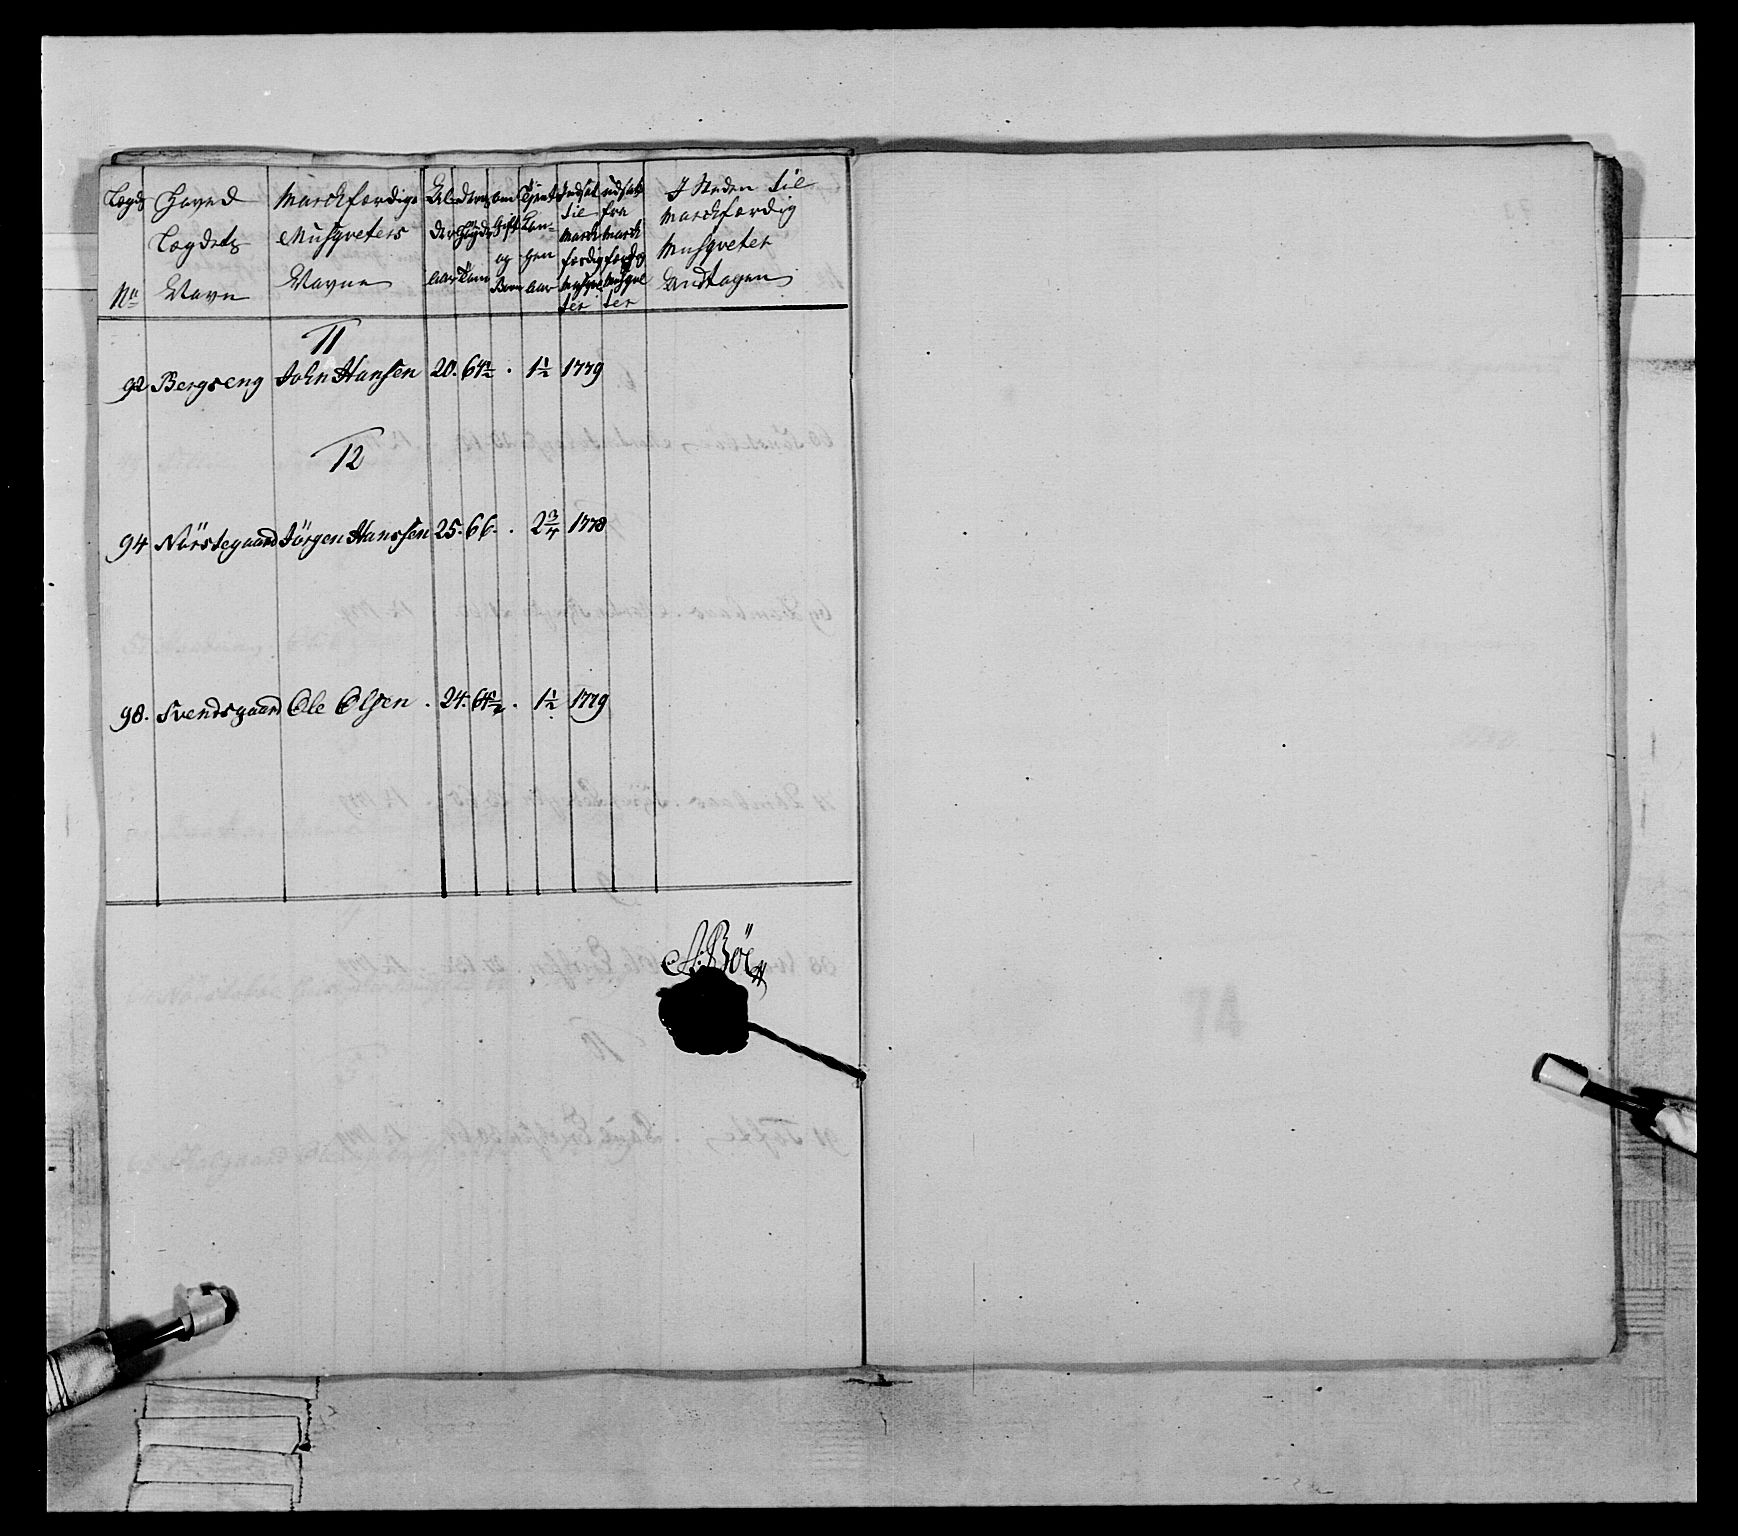 Lægds No
Hoved Lægdets Navn
Marckfærdige Musqveters Navne
Alder Aar
Høyde Tom
om Gift og Børn
Tjent Lan- gen Aar
Indsat til Marck færdig Musqve ter
udsat fra Marck færdig Musqve ter
I Steden til Marckfærdig Musqveter Andtagen
11
92 Bergseng John Hansen 20. 64½ . 1½ 1779
12
94 Nörstegaard Jörgen Hanssen 25. 66. . 2¾ 1778
98. Svendsgaard Ole Olsen . 24. 64½ . 1½ 1779
A: Böe